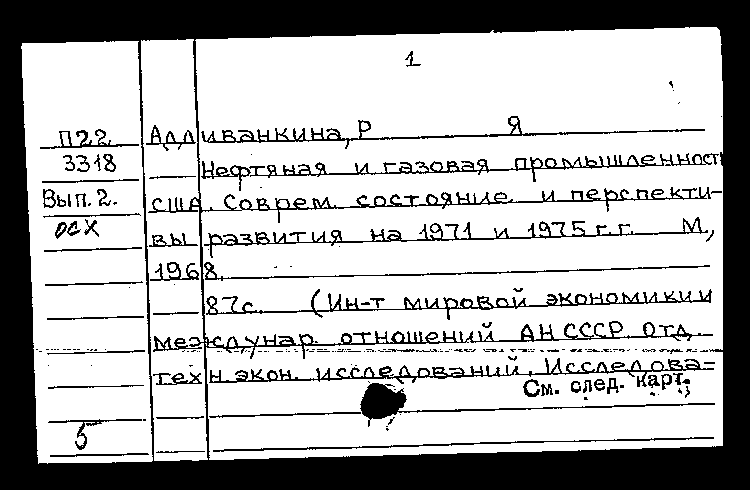 1
П22 Аддиванкина, Р Я
3318 Нефтяная и газовая промышленност
Вып.2. США. Соврем. состояние и перспекти-
осх вы развития на 1971 и 1975 г.г. М.,
1968.
87с. (Ин-т мировой экономики и
междунар. отношений АН СССР Отд.
техн. экон. исследований. Исследова=
См. след. карт.
5